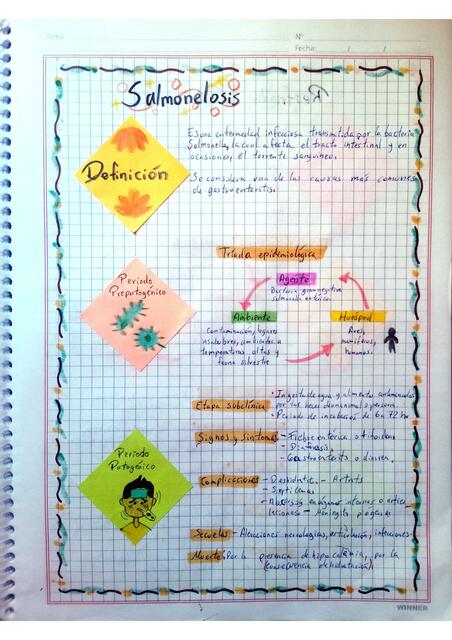 Nº
Fecha: / /
Salmonelosis
Definición
Es una enfermedad infecciosa transmitida por la bacteria
Salmonella, la cual afecta el tracto intestinal y en
ocasiones, el torrente sanguíneo.
Se considera una de las causas más comunes
de gastroenteritis.
Tríada epidemiológica
Periodo
Prepatogénico
Agente
Bacteria gram negativa
salmonella entérica.
Ambiente
Contaminación, lugares
insalubres, ambientes a
temperaturas altas y
fauna silvestre
Huésped
Aves,
mamíferos,
humanos.
Etapa subclínica
• Ingesta de agua y alimento contaminados
por las heces de un animal o persona.
• Periodo de incubación de 6 a 72 hr
Periodo
Patogénico
Signos y síntomas
- Fiebre entérica o tifoidea
- Gastroenteritis o diarrea.
Complicaciones
- Septicemia
- Abscesos
lesiones - Meningitis
Secuelas - Alteraciones neurológicas, articulación, infecciones.
Muerte: Por la presencia de hipocalemia, por la
WINNER